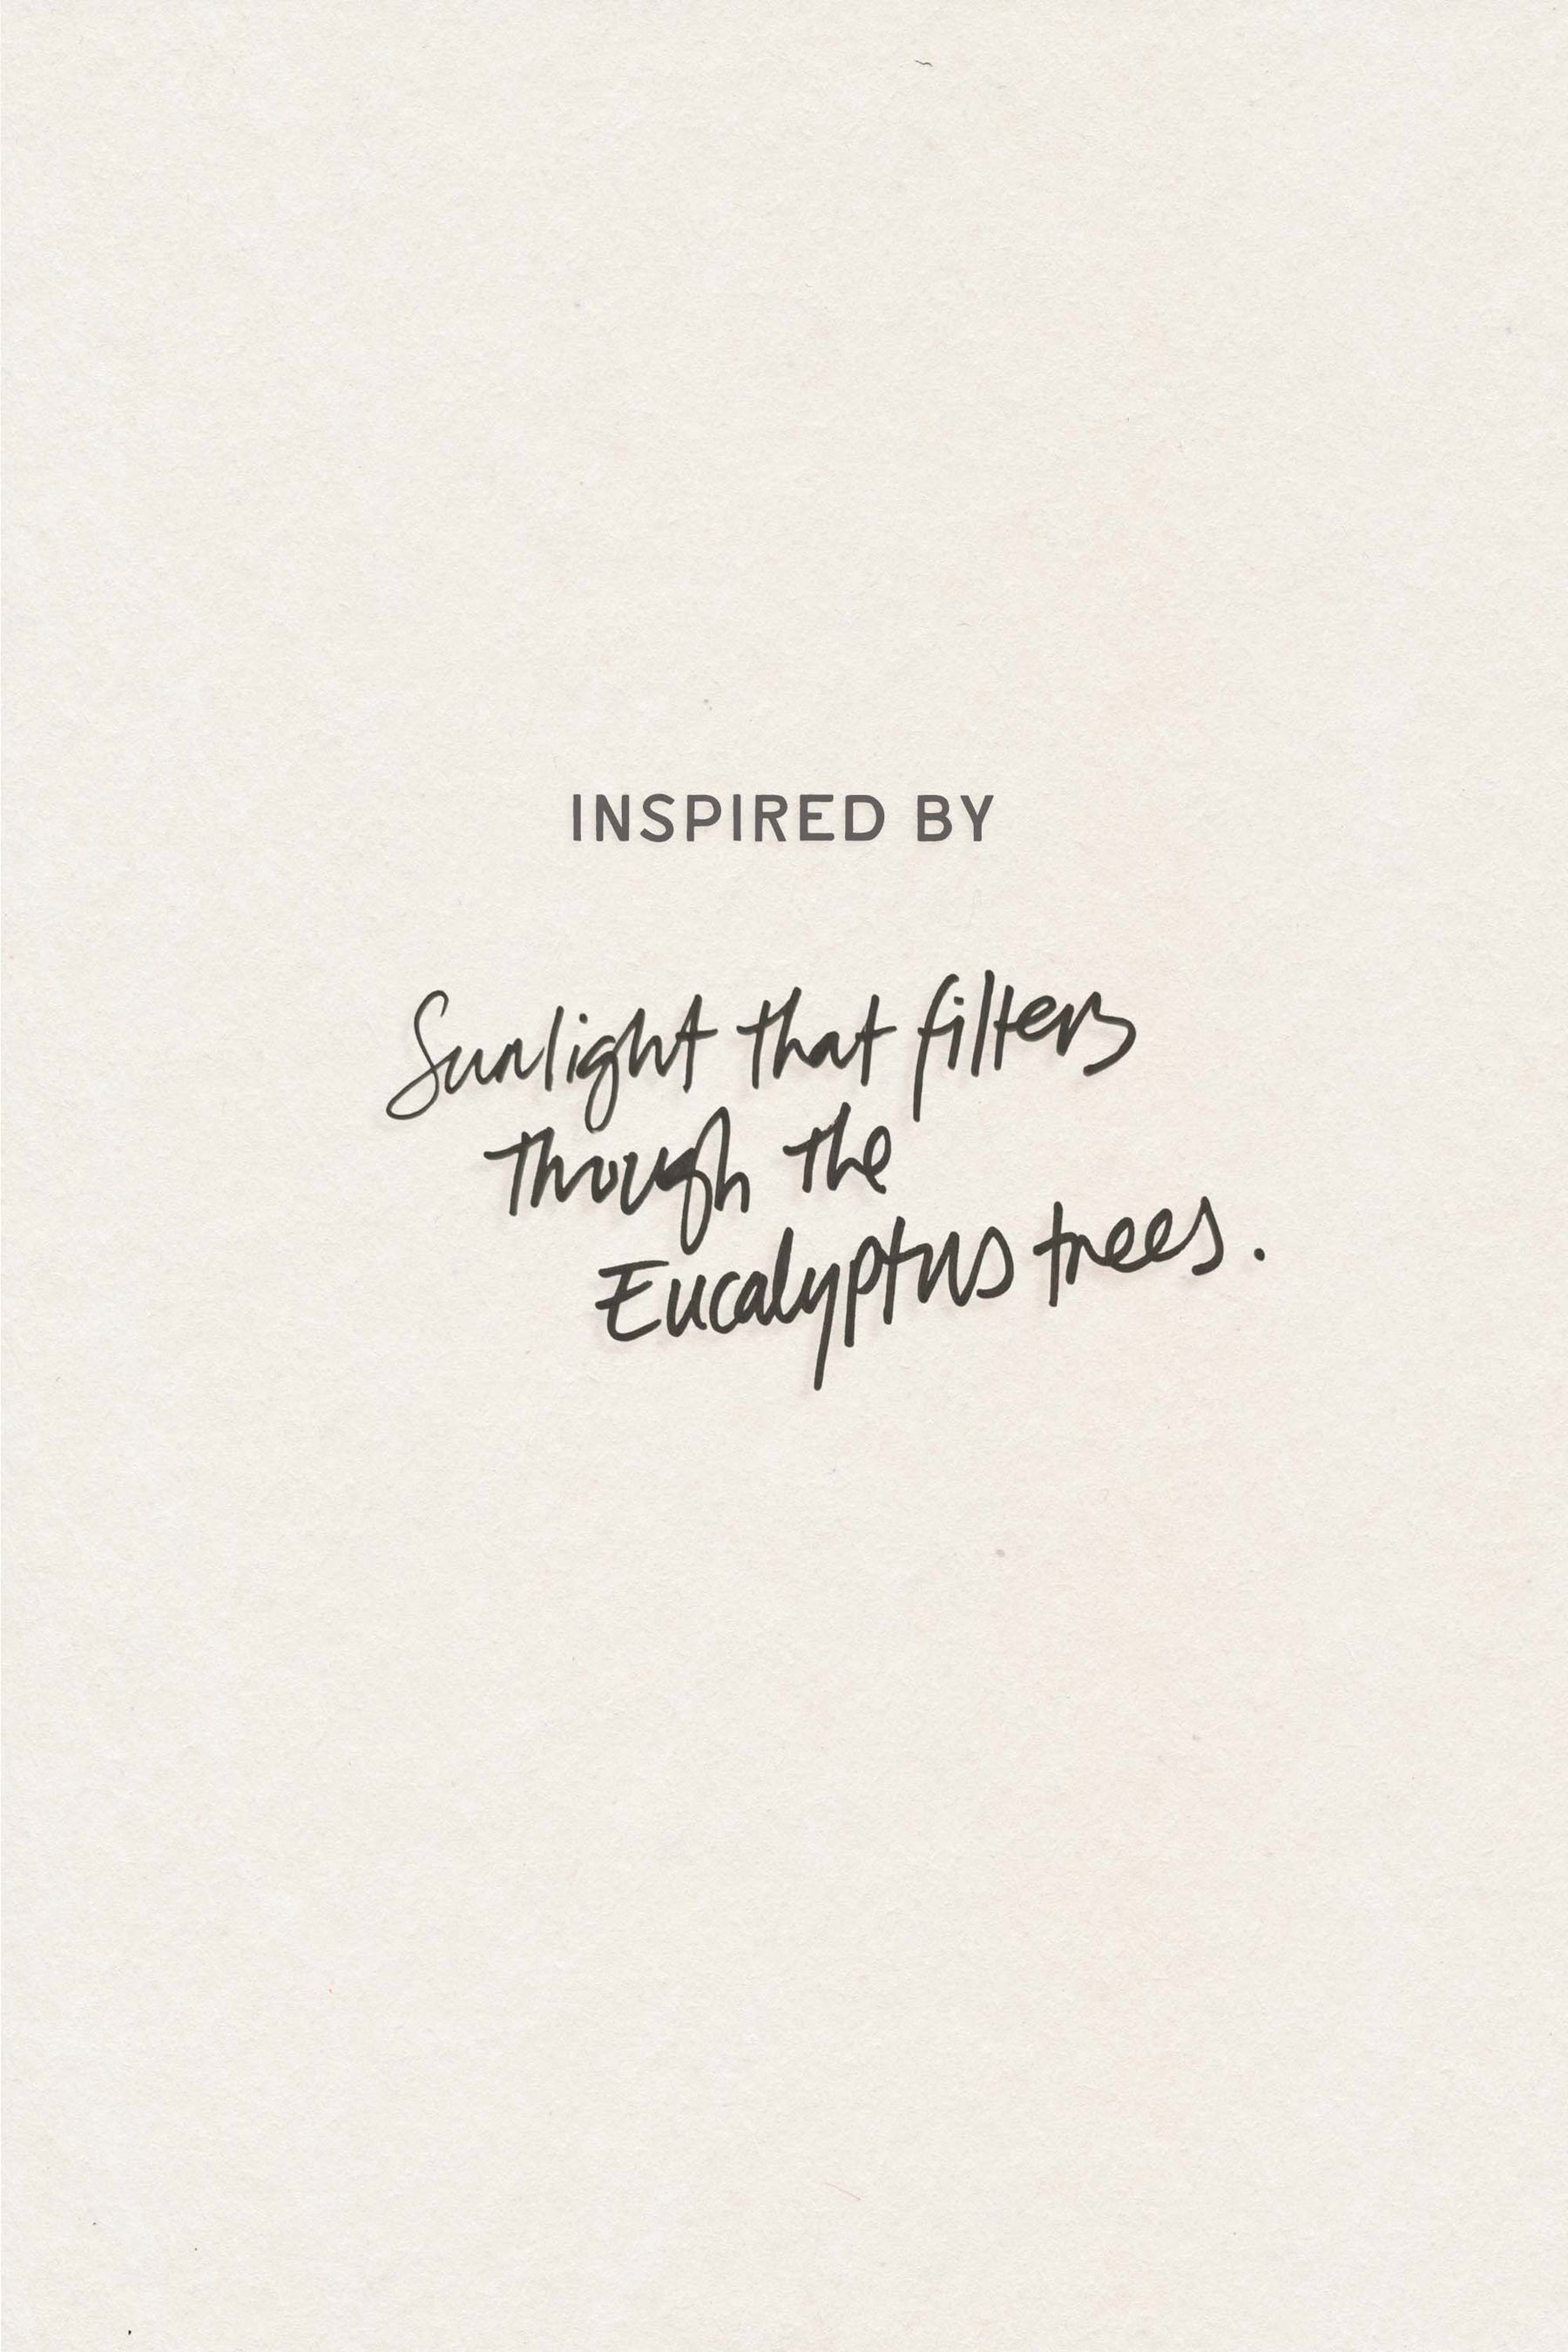 INSPIRED BY
Sunlight that filters
through the
Eucalyptus trees.